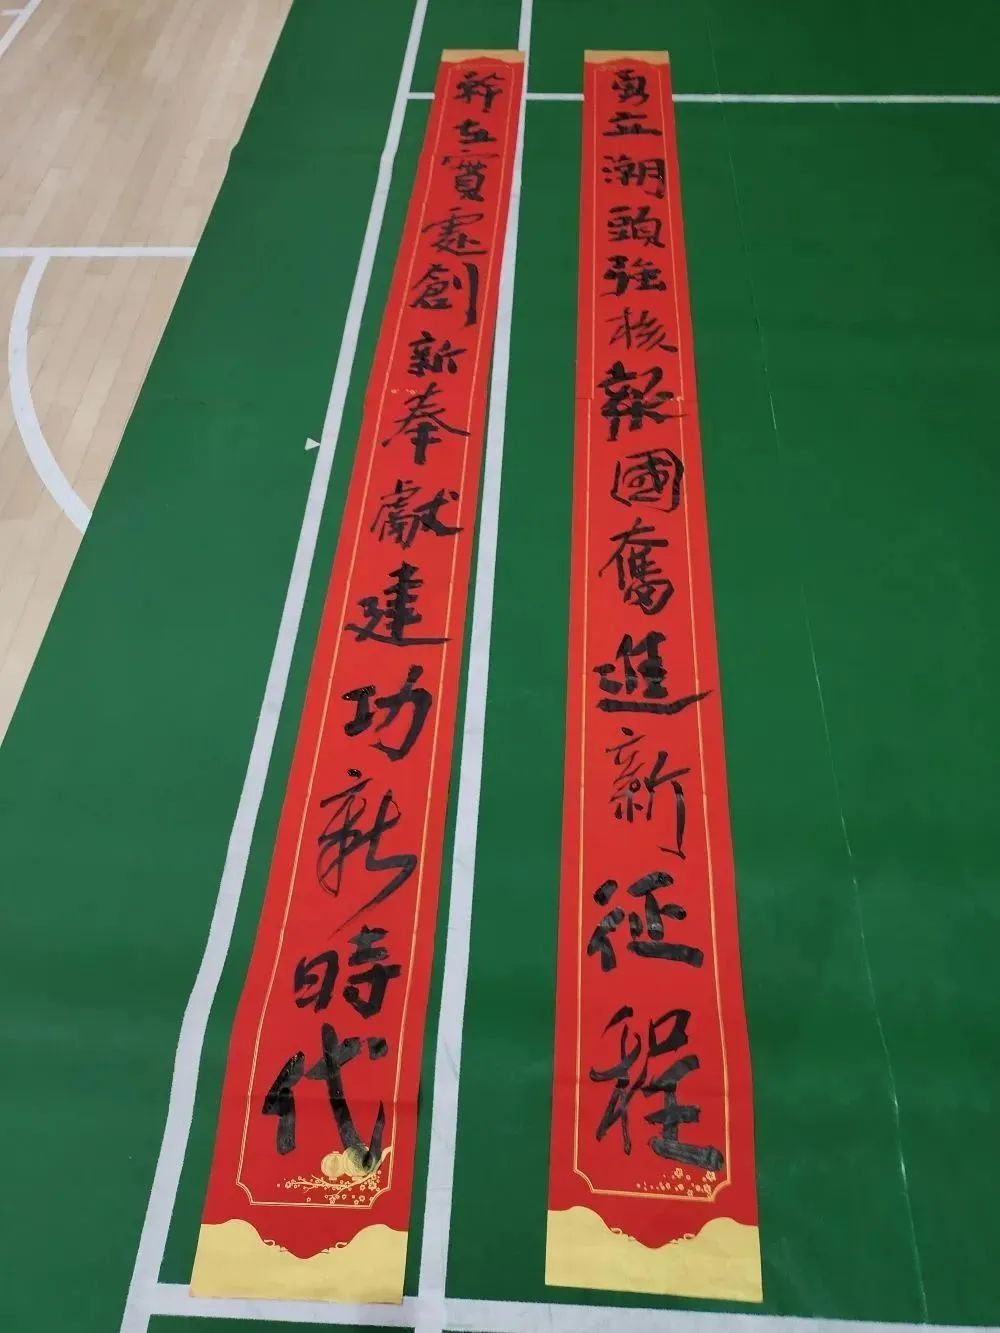 勇立潮頭強核報國奮進新征程
幹在實處創新奉獻建功新時代